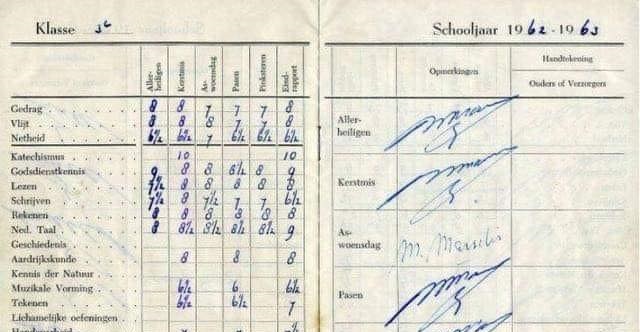 Klasse 3e
Aller-heiligen Kerstmis As-woensdag Pasen Pinksteren Eind-rapport
Gedrag 8 8 7 7 7 8
Vlijt 8 8 8 7 7 8
Netheid 6½ 6½ 7 6½ 6½ 6½
Katechismus 10 10
Godsdienstkennis 9 8 8 8½ 8 9
Lezen 7½ 8 8 8 8 8
Schrijven 7½ 8 7½ 7 7 6½
Rekenen 8 8 8 8 8 8
Ned. Taal 8 8½ 8½ 8½ 8½ 9
Geschiedenis
Aardrijkskunde 8 8 8
Kennis der Natuur
Muzikale Vorming 6½ 6 6½
Tekenen 6½ 6½ 7
Lichamelijke oefeningen
Handwerken
Schooljaar 1962-1963
Opmerkingen
Handtekening
Ouders of Verzorgers
Aller-
heiligen
Kerstmis
As-
woensdag
Pasen